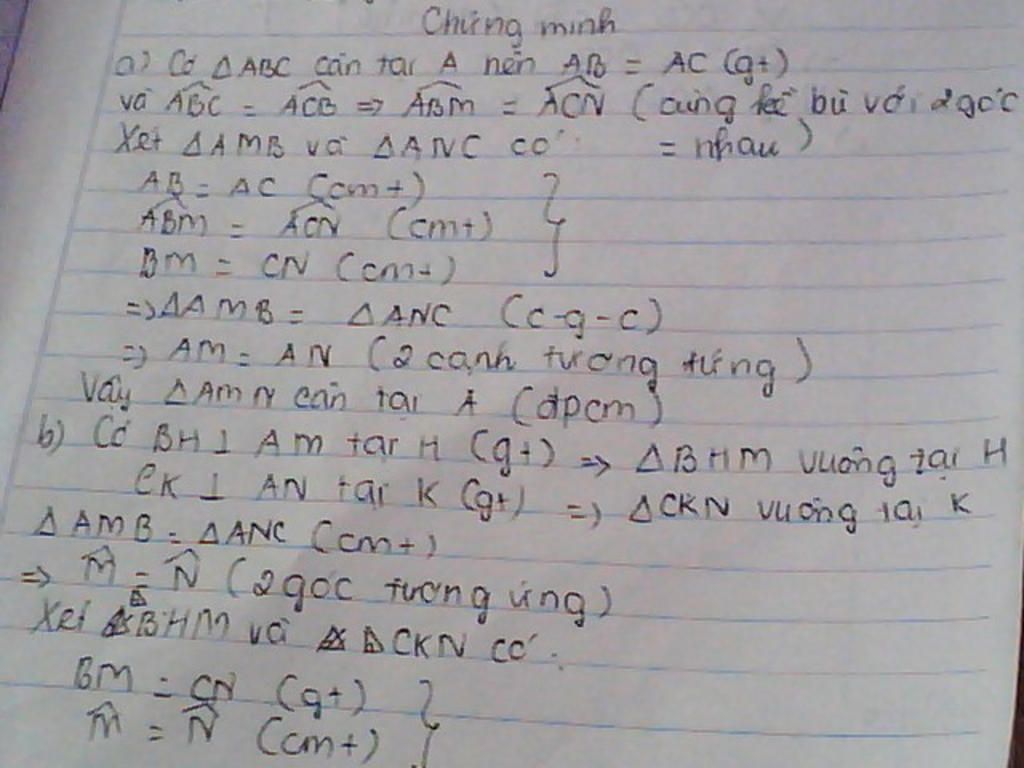 Chứng minh
a) Có ΔABC cân tại A nên AB = AC (gt)
và \widehat{ABC} = \widehat{ACB} => \widehat{ABM} = \widehat{ACN} (cùng kề bù với 2 góc
Xét ΔAMB và ΔANC có: = nhau)
AB = AC (cmt)
\widehat{ABM} = \widehat{ACN} (cmt)
BM = CN (cmt)
=> ΔAMB = ΔANC (c-g-c)
=> AM = AN (2 cạnh tương tứng)
Vậy ΔAMN cân tại A (đpcm)
b) Có BH ⊥ AM tại H (gt) => ΔBHM vuông tại H
CK ⊥ AN tại K (gt) => ΔCKN vuông tại K
ΔAMB = ΔANC (cmt)
=> \widehat{M} = \widehat{N} (2 góc tương ứng)
Xét ΔBHM và ΔCKN có:
BM = CN (gt)
\widehat{M} = \widehat{N} (cmt)